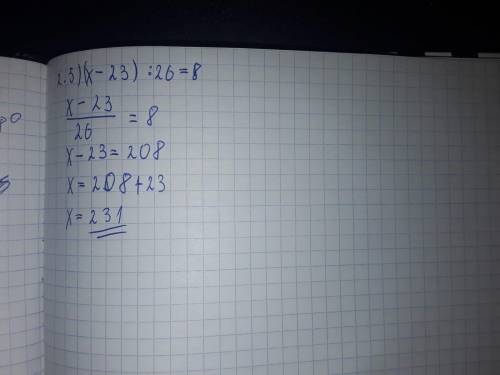 2.3) (x-23) :26=8
x-23/26 = 8
x-23=208
x=208+23
x=231